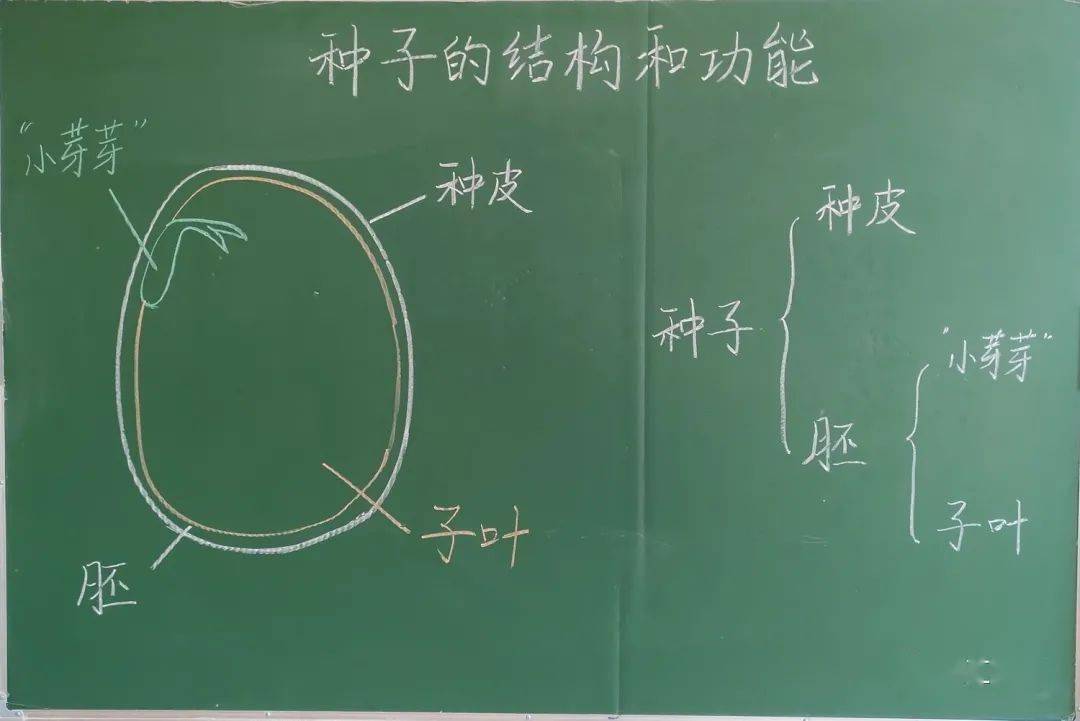 种子的结构和功能
“小芽芽”
种皮
子叶
胚
种子
种皮
胚
“小芽芽”
子叶